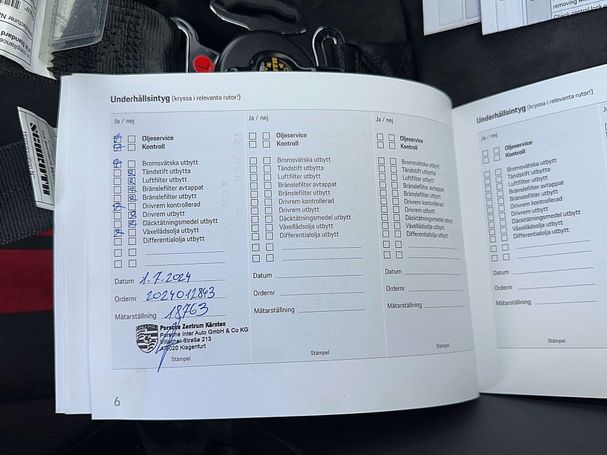 Underhållsintyg (kryssa i relevanta rutor!)
Ja / nej
Oljeservice
Kontroll
Bromsvätska utbytt
Tändstift utbytta
Luftfilter utbytt
Bränslefilter avtappat
Bränslefilter utbytt
Drivrem kontrollerad
Drivrem utbytt
Däcktätningsmedel utbytt
Växellådsolja utbytt
Differentialolja utbytt
Datum 1.7.2024
Ordernr 2024012843
Mätarställning 18763
Porsche Zentrum Kärnten
Porsche Inter Auto GmbH & Co KG
Villacher Straße 213
A-9020 Klagenfurt
Stämpel
6
Ja / nej
Oljeservice
Kontroll
Bromsvätska utbytt
Tändstift utbytta
Luftfilter utbytt
Bränslefilter avtappat
Bränslefilter utbytt
Drivrem kontrollerad
Drivrem utbytt
Däcktätningsmedel utbytt
Växellådsolja utbytt
Differentialolja utbytt
Datum
Ordernr
Mätarställning
Stämpel
Ja / nej
Oljeservice
Kontroll
Bromsvätska utbytt
Tändstift utbytta
Luftfilter utbytt
Bränslefilter avtappat
Bränslefilter utbytt
Drivrem kontrollerad
Drivrem utbytt
Däcktätningsmedel utbytt
Växellådsolja utbytt
Differentialolja utbytt
Datum
Ordernr
Mätarställning
Stämpel
Underhållsintyg (kryssa i relevanta rutor!)
Ja / nej
Oljeservice
Kontroll
Bromsvätska utbytt
Tändstift utbytta
Luftfilter utbytt
Bränslefilter avtappat
Bränslefilter utbytt
Drivrem kontrollerad
Drivrem utbytt
Däcktätningsmedel utbytt
Växellådsolja utbytt
Differentialolja utbytt
Datum
Ordernr
Mätarställning
Stämpel